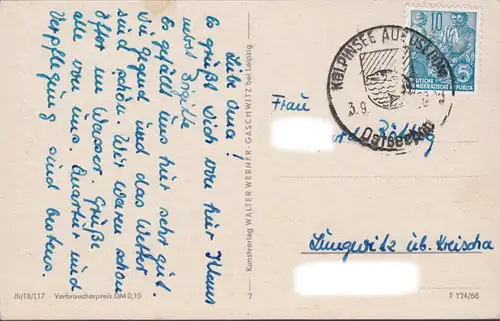 Liebe Oma!
Es grüßt Dich von hier Klaus
nebst Brigitte
Es gefällt uns hier sehr gut.
Die Gegend und das Wetter
sind schön. Wir waren schon
öfter im Wasser. Grüße
alle von uns. Quartier und
Verpflegung sind bestens.
III/18/117 Verbraucherpreis DM 0,10
Kunstverlag WALTER WERNER · GASCHWITZ bei Leipzig
7
KÖLPINSEE AUF USEDOM
3.9.
Ostseebad
10
DEUTSCHE
DEMOKRATISCHE REPUBLIK
5
Frau
Lungwitz üb. Kreischa
T 174/56